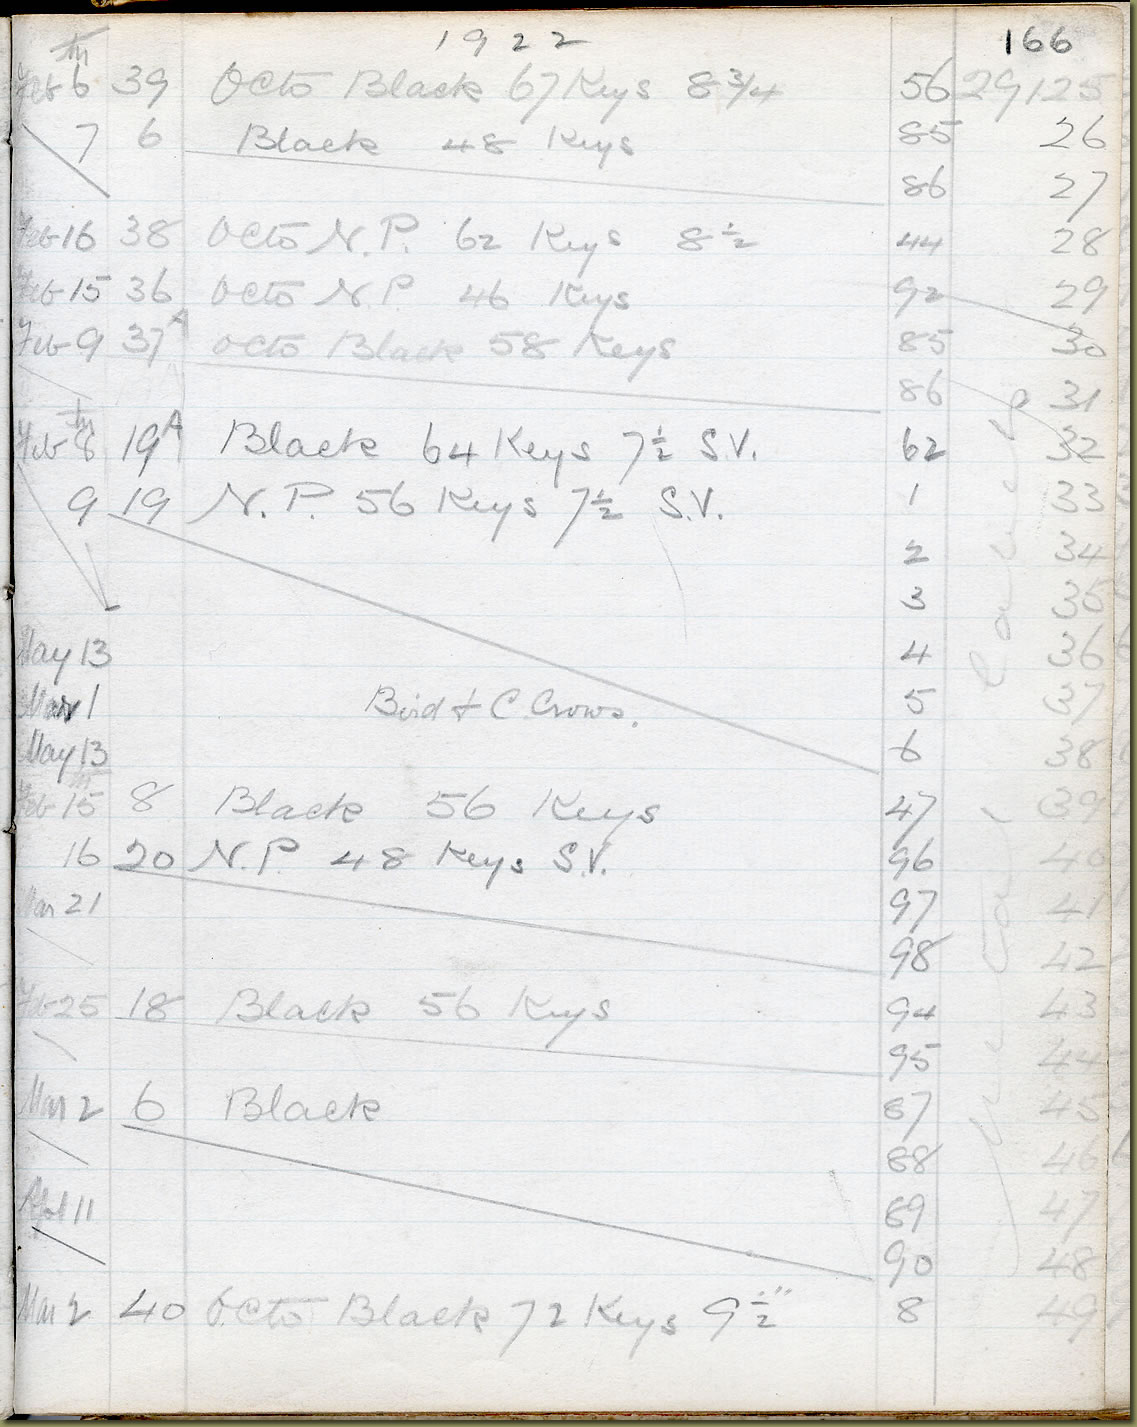 1922 166
th
Feb 6 39 Octo Black 67 Keys 8 3/4 56 29125
7 6 Black 48 Keys 85 26
86 27
Feb 16 38 Octo N.P. 62 Keys 8 1/2 44 28
Feb 15 36 Octo N.P. 46 Keys 92 29
Feb 9 37A Octo Black 58 Keys 85 30
86 31
Feb 8th 19A Black 64 Keys 7 1/2 S.V. 62 32
9 19 N.P. 56 Keys 7 1/2 S.V. 1 33
2 34
3 35
May 13 4 36
Mar 1 Bird & C. Crows. 5 37
May 13 6 38
Feb 15th 8 Black 56 Keys 47 39
16 20 N.P. 48 Keys S.V. 96 40
Mar 21 97 41
98 42
Feb 25 18 Black 56 Keys 94 43
95 44
Mar 2 6 Black 87 45
88 46
Apl 11 89 47
90 48
Mar 2 40 Octo Black 72 Keys 9 1/2" 8 49